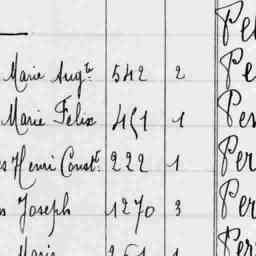 Pe
Marie Augte 542 2 Pe
Marie Felix 451 1 Per
s Henri Constt 222 1 Per
s Joseph 1270 3 Per
Marie 1 Per